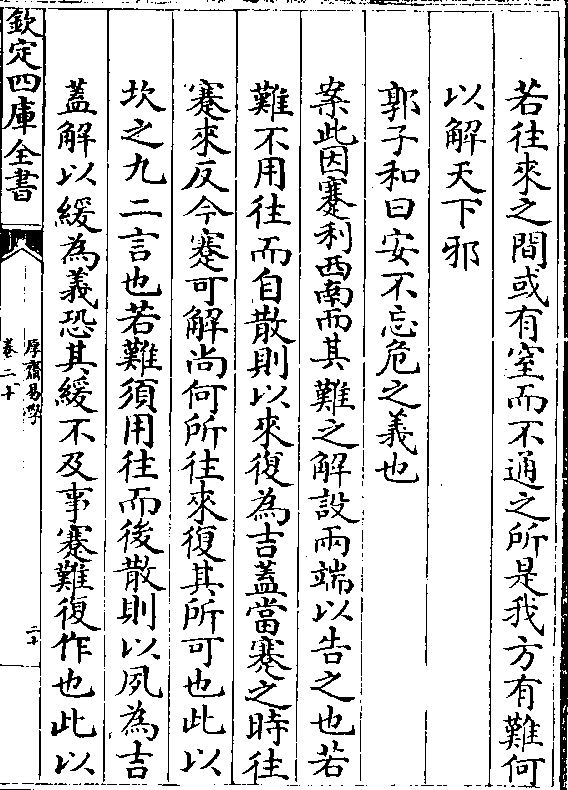 若往來之間或有窒而不通之所是我方有難何
以解天下邪
郭子和曰安不忘危之義也
案此因蹇利西南而其難之解設兩端以告之也若
難不用往而自散則以來復為吉蓋當蹇之時往
蹇來反今蹇可解尚何所往來復其所可也此以
坎之九二言也若難須用往而後散則以夙為吉
蓋解以緩為義恐其緩不及事蹇難復作也此以
欽定四庫全書
厚齋易學
卷二十
二十